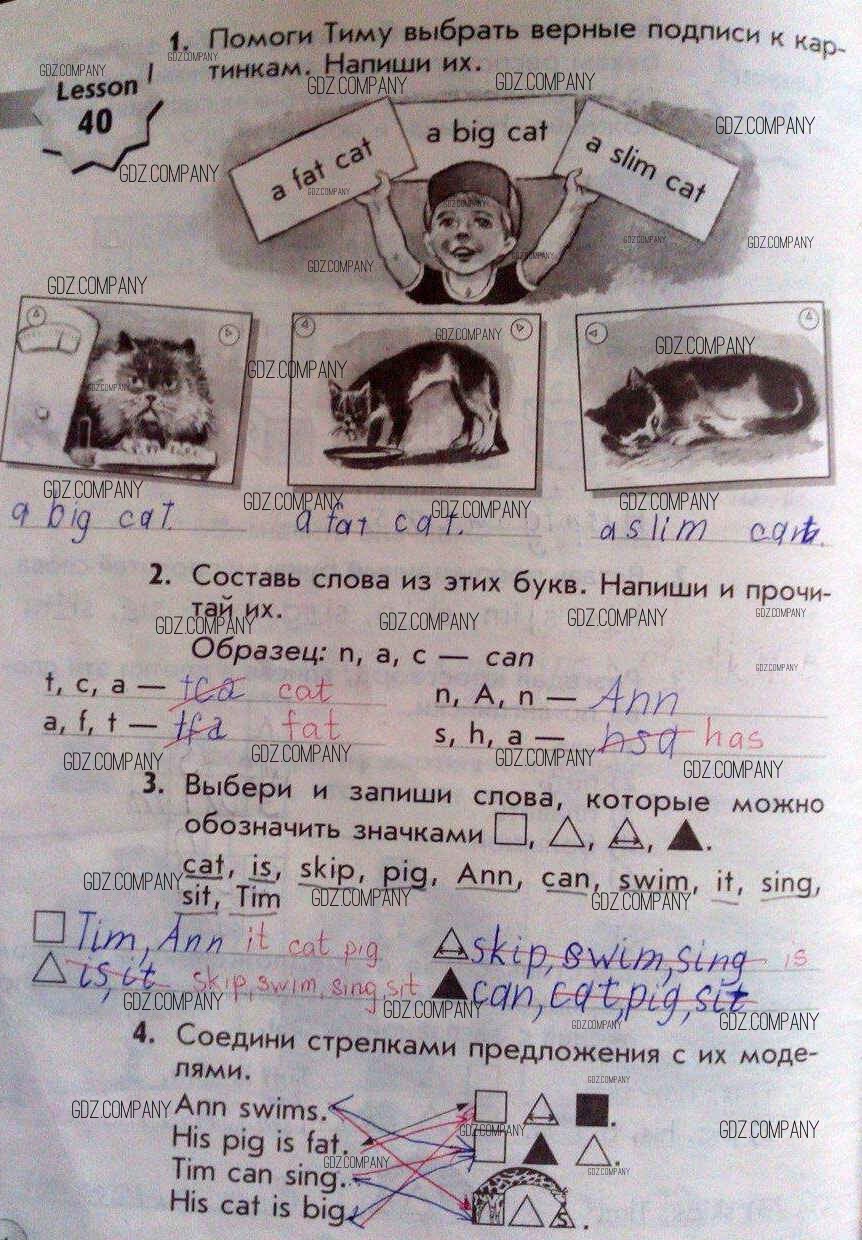 1. Помоги Тиму выбрать верные подписи к кар-
тинкам. Напиши их.
Lesson
40
a fat cat
a big cat
a slim cat
a big cat a fat cat. a slim cat.
2. Составь слова из этих букв. Напиши и прочи-
тай их.
Образец: n, a, c — can
t, c, a — tca cat n, A, n — Ann
a, f, t — tfa fat s, h, a — hsa has
3. Выбери и запиши слова, которые можно
обозначить значками □, △, , ▲.
cat, is, skip, pig, Ann, can, swim, it, sing,
sit, Tim
Tim, Ann it cat pig skip, swim, sing is
is, it skip, swim, sing, sit can, cat, pig, sit
4. Соедини стрелками предложения с их моде-
лями.
Ann swims.
His pig is fat.
Tim can sing.
His cat is big.
GDZ.COMPANY